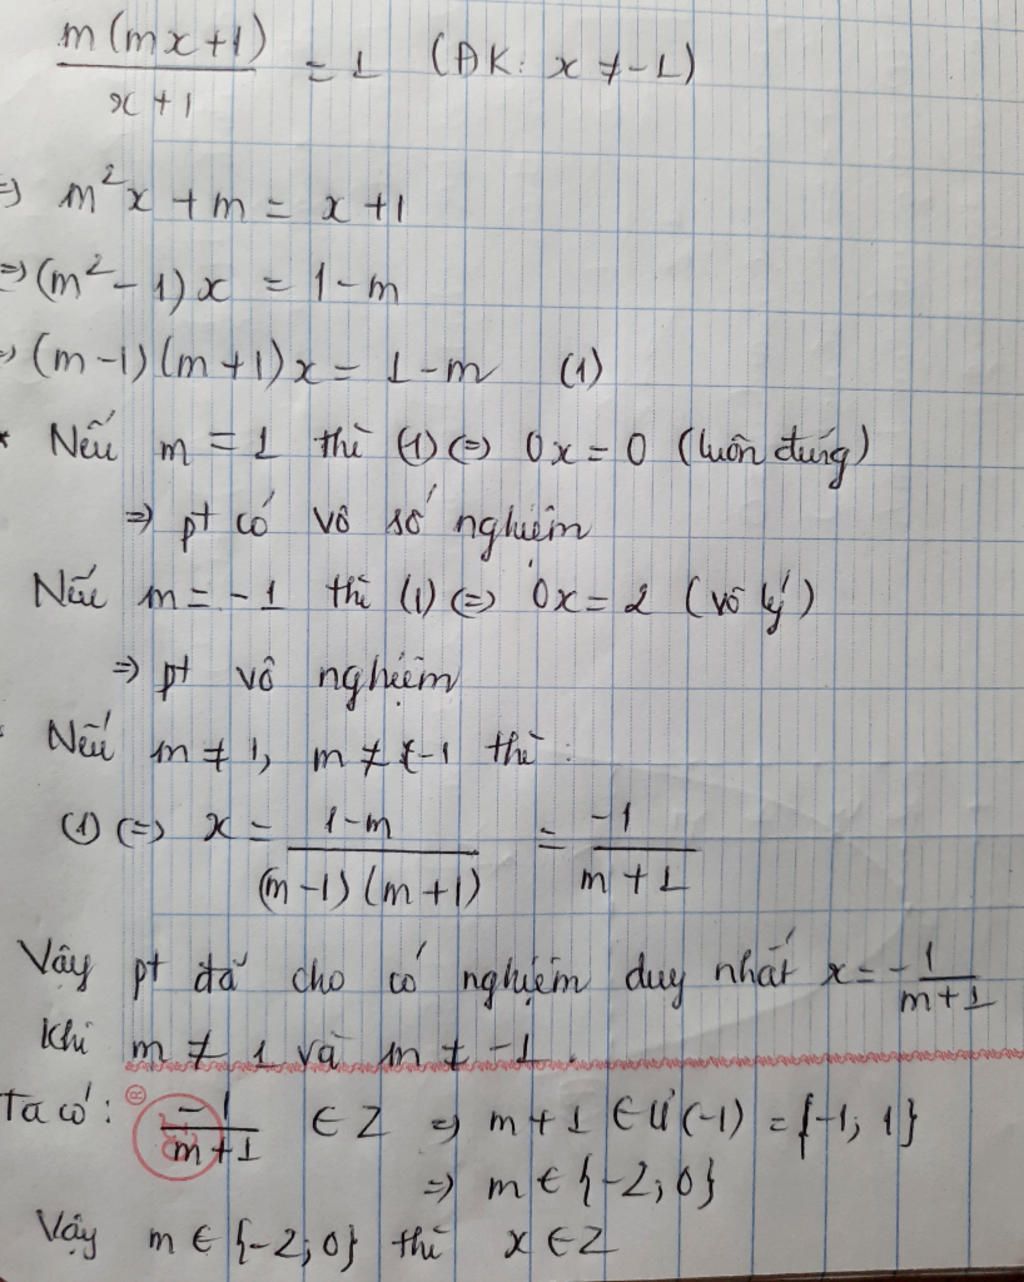 m(mx+1)/(x+1) = 1 (ĐK: x ≠ -1)
=> m²x + m = x + 1
=> (m² - 1)x = 1 - m
=> (m-1)(m+1)x = 1 - m (1)
* Nếu m = 1 thì (1) <=> 0x = 0 (luôn đúng)
=> pt có vô số nghiệm
Nếu m = -1 thì (1) <=> 0x = 2 (vô lý)
=> pt vô nghiệm
Nếu m ≠ 1, m ≠ -1 thì:
(1) <=> x = (1-m)/((m-1)(m+1)) = -1/(m+1)
Vậy pt đã cho có nghiệm duy nhất x = -1/(m+1)
khi m ≠ 1 và m ≠ -1.
Ta có: -1/(m+1) ∈ Z => m+1 ∈ Ư(-1) = {-1; 1}
=> m ∈ {-2; 0}
Vậy m ∈ {-2; 0} thì x ∈ Z